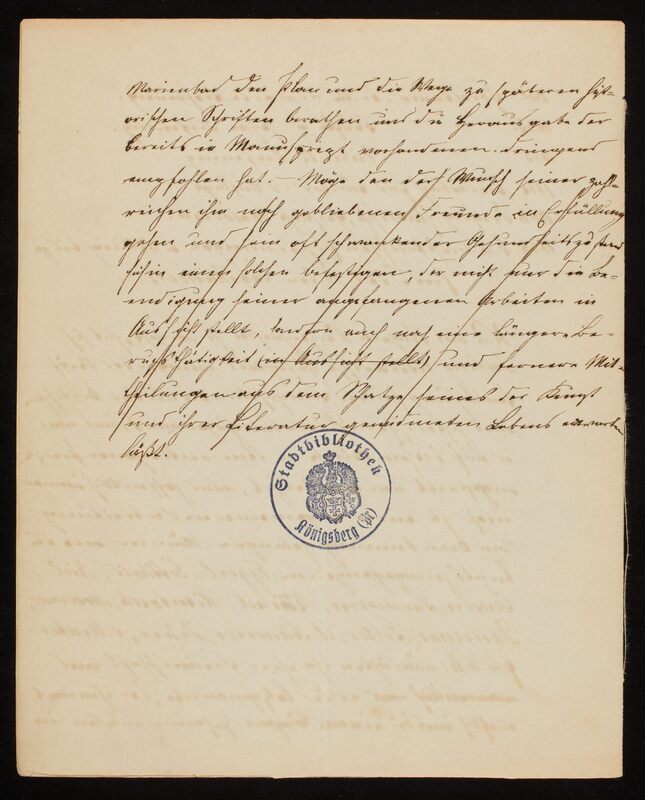 Marienbad den Plan und die Wege zu späteren hist-
orischen Schriften berathen und die Herausgabe der
bereits in Manuscript vorhandenen dringend
empfohlen hat. – Möge denn der Wunsch seiner zahl-
reichen ihm noch gebliebenen Freunde in Erfüllung
gehen und sein oft schwankender Gesundheitszustand
sich in einen solchen befestigen, der nicht nur die Be-
endigung seiner angefangenen Arbeiten in
Aussicht stellt, sondern auch noch eine längere Be-
rufsthätigkeit (in Aussicht stellt) und fernere Mit-
theilungen aus dem Schatze seines der Kunst
und ihrer Literatur gewidmeten Lebens erwarten
läßt.
Stadtbibliothek
Königsberg (Pr)